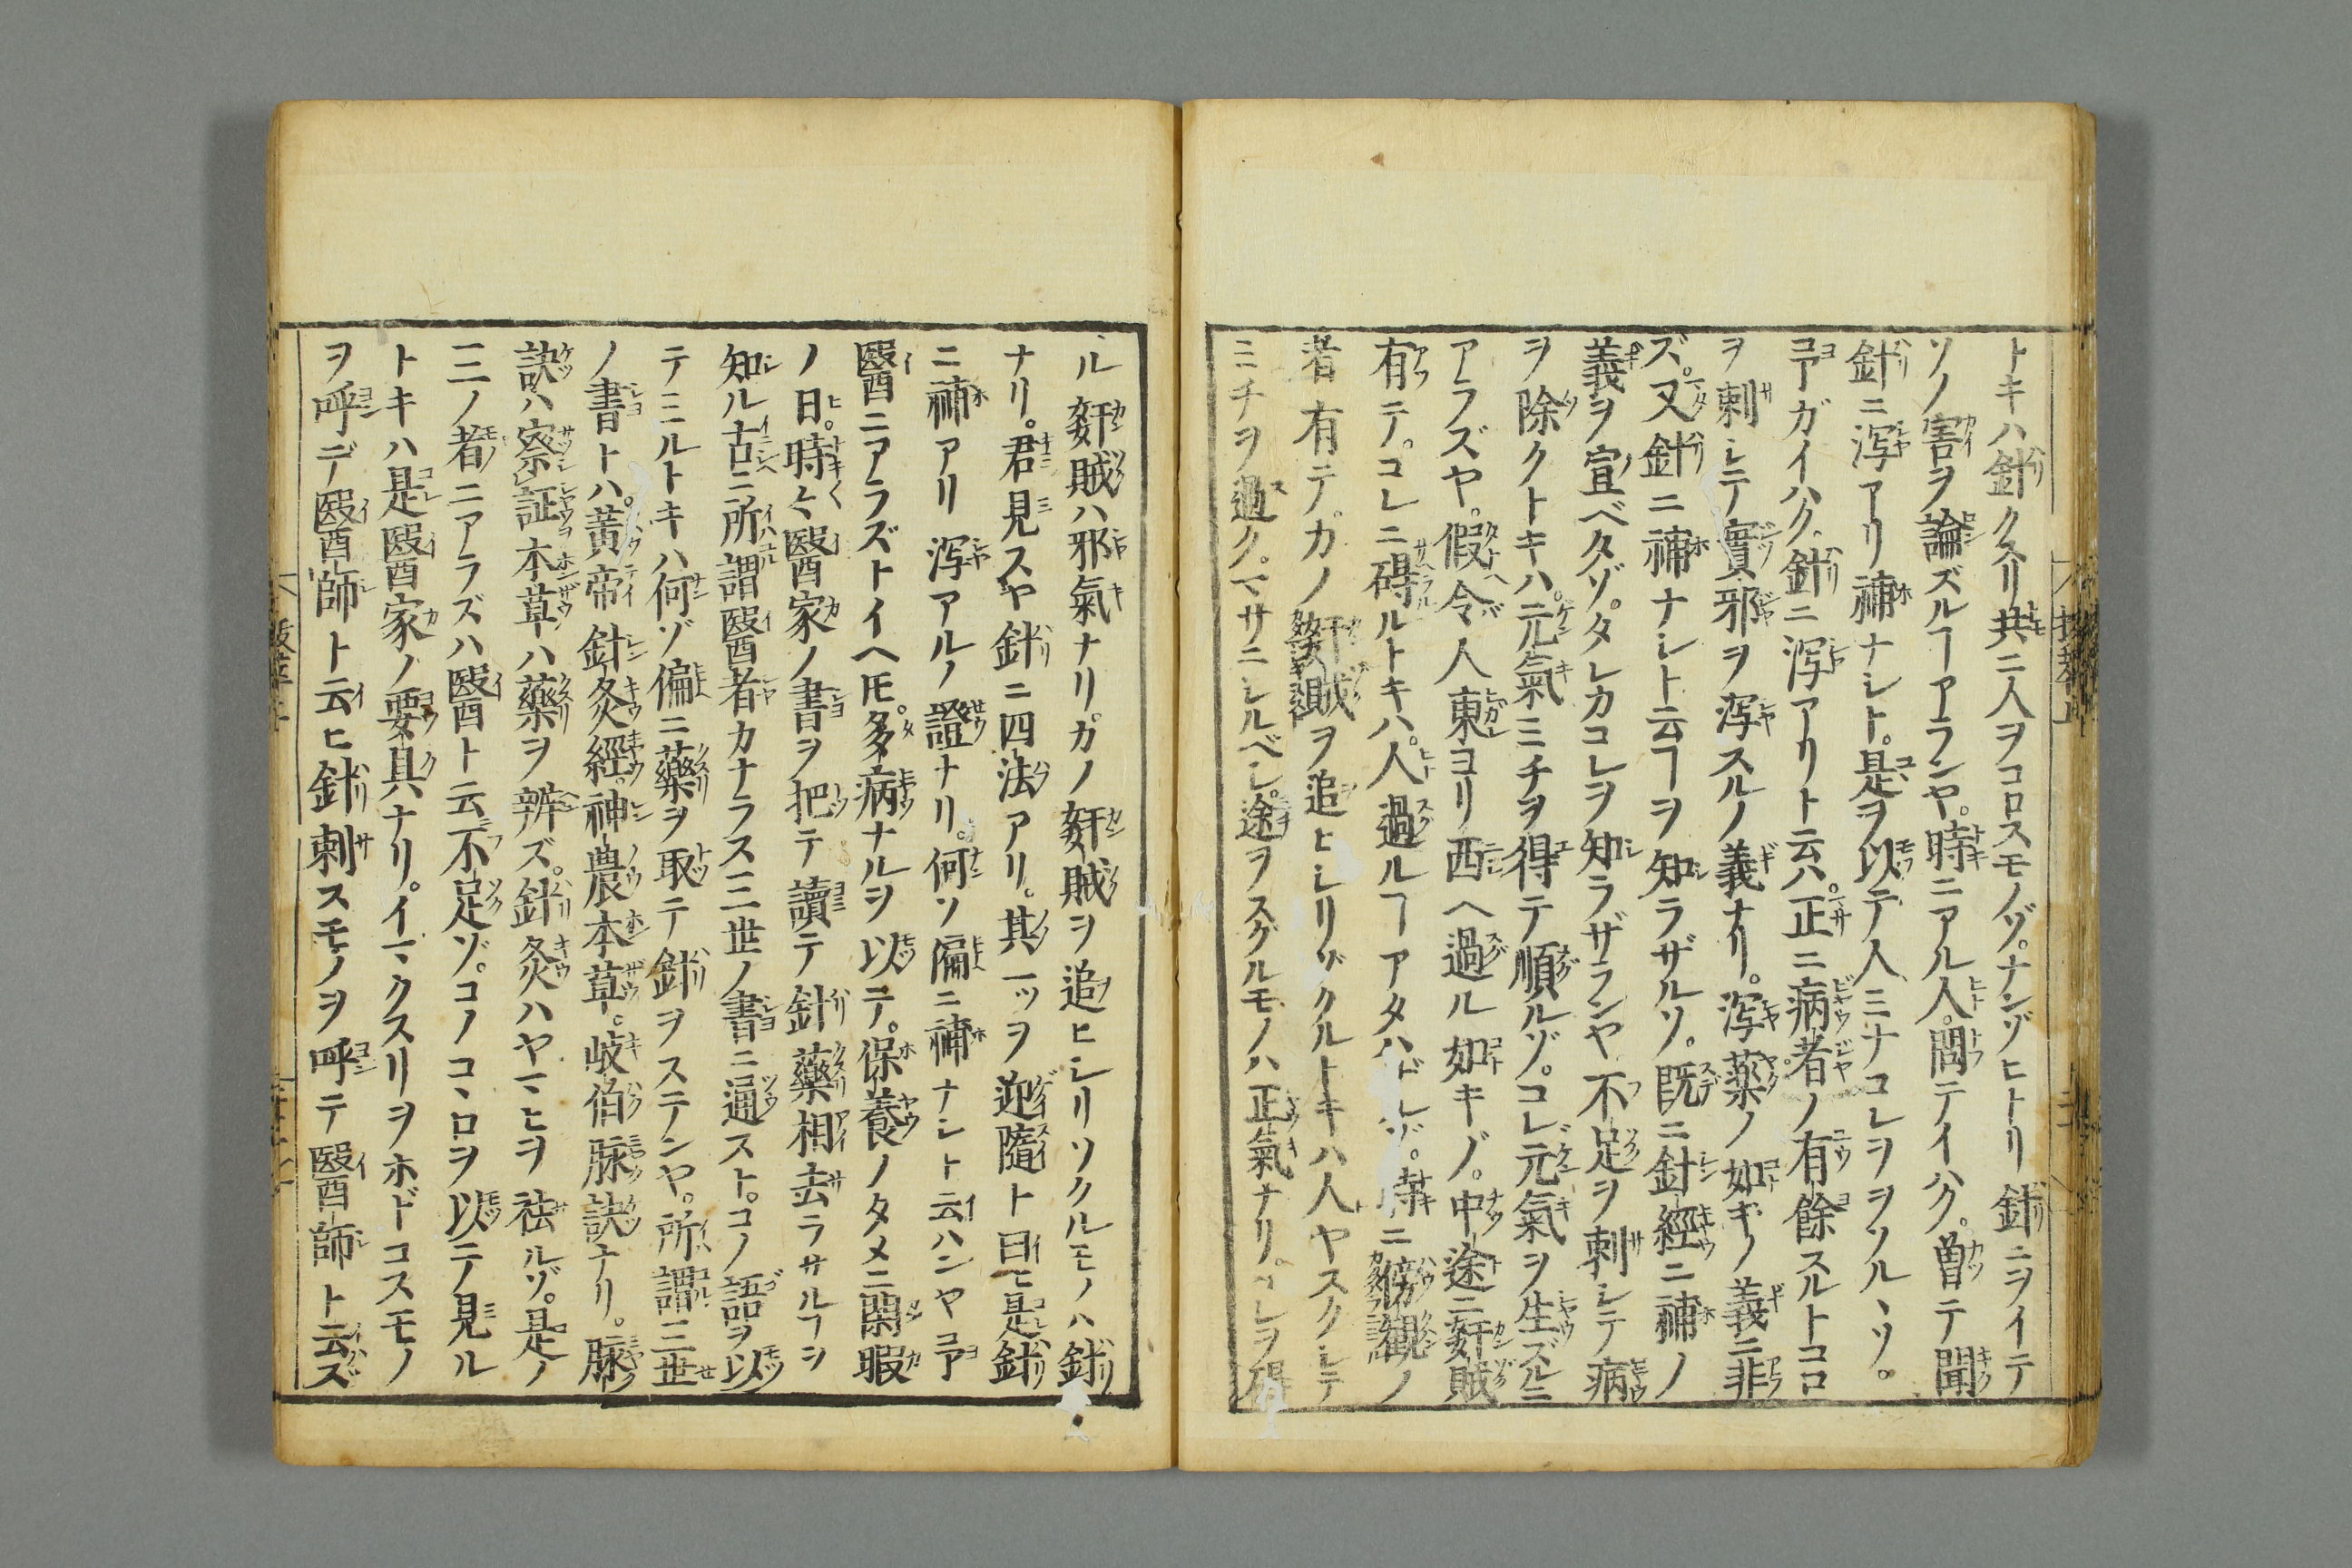 トキハ針クスリ共ニ人ヲコロスモノゾ。ナンゾヒトリ針ニヲイテ
ソノ害ヲ論ズルヿアランヤ。時ニアル人。問テイハク。曽テ聞
針ニ瀉アリ補ナシト。是ヲ以テ人ミナコレヲヲソルヽソ。
ヨアガイハク。針ニ瀉アリト云ハ。正ニ病者ノ有餘スルトコロ
ヲ刺シテ實邪ヲ瀉スルノ義ナリ。瀉薬ノ如キノ義ニ非
ズ。又針ニ補ナシト云ヿヲ知ラザルソ。既ニ針經ニ補ノ
義ヲ宣ベタゾ。タレカコレヲ知ラザランヤ不足ヲ刺シテ病
ヲ除クトキハ。元氣ミチヲ得テ順ルゾ。コレ元氣ヲ生ズルニ
アラズヤ。假令人東ヨリ西ヘ過ル如キゾ。中途ニ姧賊
有テ。コレニ碍ルトキハ。人過ルヿアタハドルゾ。時ニ傍觀ノ
者有テ。カノ姧賊ヲ追ヒシリゾクルトキハ人ヤスクシテ
ミチヲ過ク。マサニシルベシ。途ヲスグルモノハ正氣ナリ。コレヲ碍
ル姧賊ハ邪氣ナリ。カノ姧賊ヲ追ヒシリソクルモノハ針
ナリ。君見スヤ針ニ四法アリ。其一ッヲ迎隨ト曰ヒ是針
ニ補アリ瀉アルノ證ナリ。何ソ偏ニ補ナシト云ハンヤヨア
醫ニアラズトイヘ𪜈。多病ナルヲ以テ。保養ノタメニ閑暇
ノ日。時々醫家ノ書ヲ把テ讀テ針藥相去ラサルヿヲ
知ル古ニ所謂醫者カナラス三世ノ書ニ通スト。コノ語ヲ以
テミルトキハ何ゾ偏ニ藥ヲ取テ針ヲステンヤ。所謂三世
ノ書トハ。黃帝針灸經。神農本草。岐伯脉訣ナリ。脉
訣ハ察証本草ハ藥ヲ辨ズ。針灸ハヤマヒヲ祛ルゾ。是ノ
三ノ者ニアラズハ醫ト云不足ゾ。コノコヽロヲ以テノ見ル
トキハ是醫家ノ要具ナリ。イマクスリヲホドコスモノ
ヲ呼デ醫師ト云ヒ針刺スモノヲ呼テ醫師ト云ズ